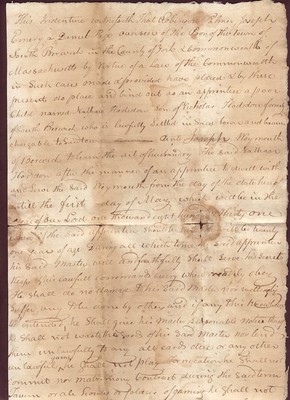 This Indenture witnesseth that Adrian Pluis, Joseph
Emery & Daniel overseers of the Poor of the town of
South Berwick in the County of York & Commonwealth of
Massachusetts by Virtue of a Law of the Commonwealth
in such cases made & provided have placed & by these
present do place and bind out as an apprentice a poor
Child named Nathan Hodsdon Son of Nicholas Hodsdon formerly
of South Berwick who is lawfully Settled in said town and became
chargable Unto Joseph Weymouth
of to learn the art of husbandry The said Nathan
Hodsdon after the manner of an apprentice to dwell with
and Serve the said Weymouth from the day of the date hereof
untill the first day of May which will be in the
year of our Lord one thousand eight hundred Thirty one
if the said apprentice should be will be twenty
one years of age During all which time said apprentice
his said Master well & faithfully shall Serve his secrets
keep & his lawfull commands every where readily obey
He shall do no damage to his said Master nor with
Suffer any to be done by others and if any this he
be intended he shall give his Master seasonable notice thereof
he Shall not waste the goods of his said Master nor lend
them unlawfully to any at cards dice or any other
unlawful game he shall not play fornication he shall not
commit nor matrimony contract during the said term
tavern or ale house or places of gaming he Shall not